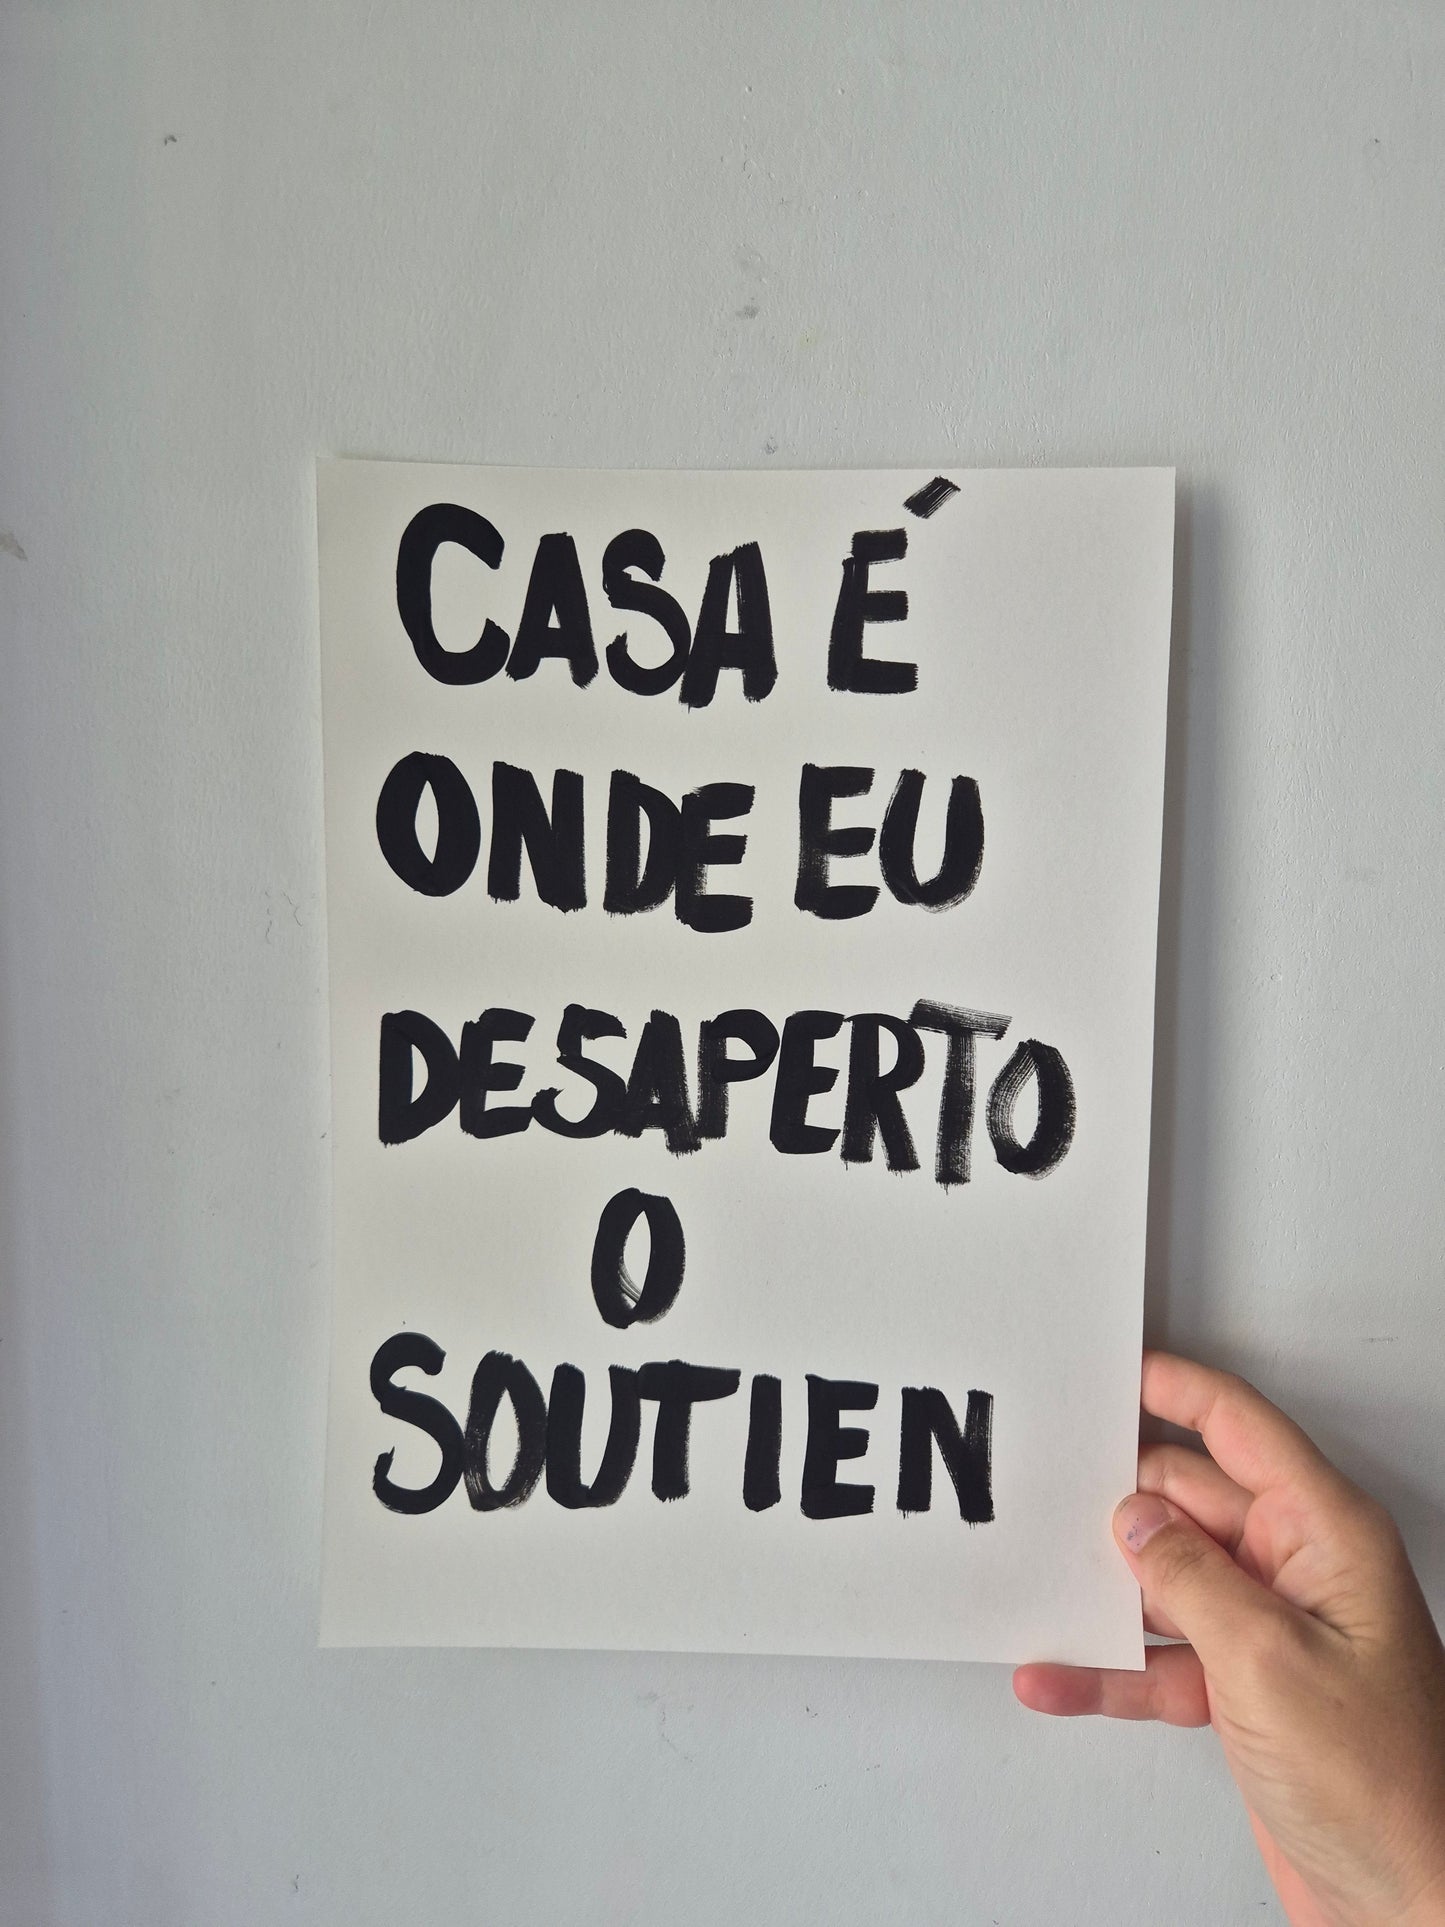 CASA É
ONDE EU
DESAPERTO
O
SOUTIEN